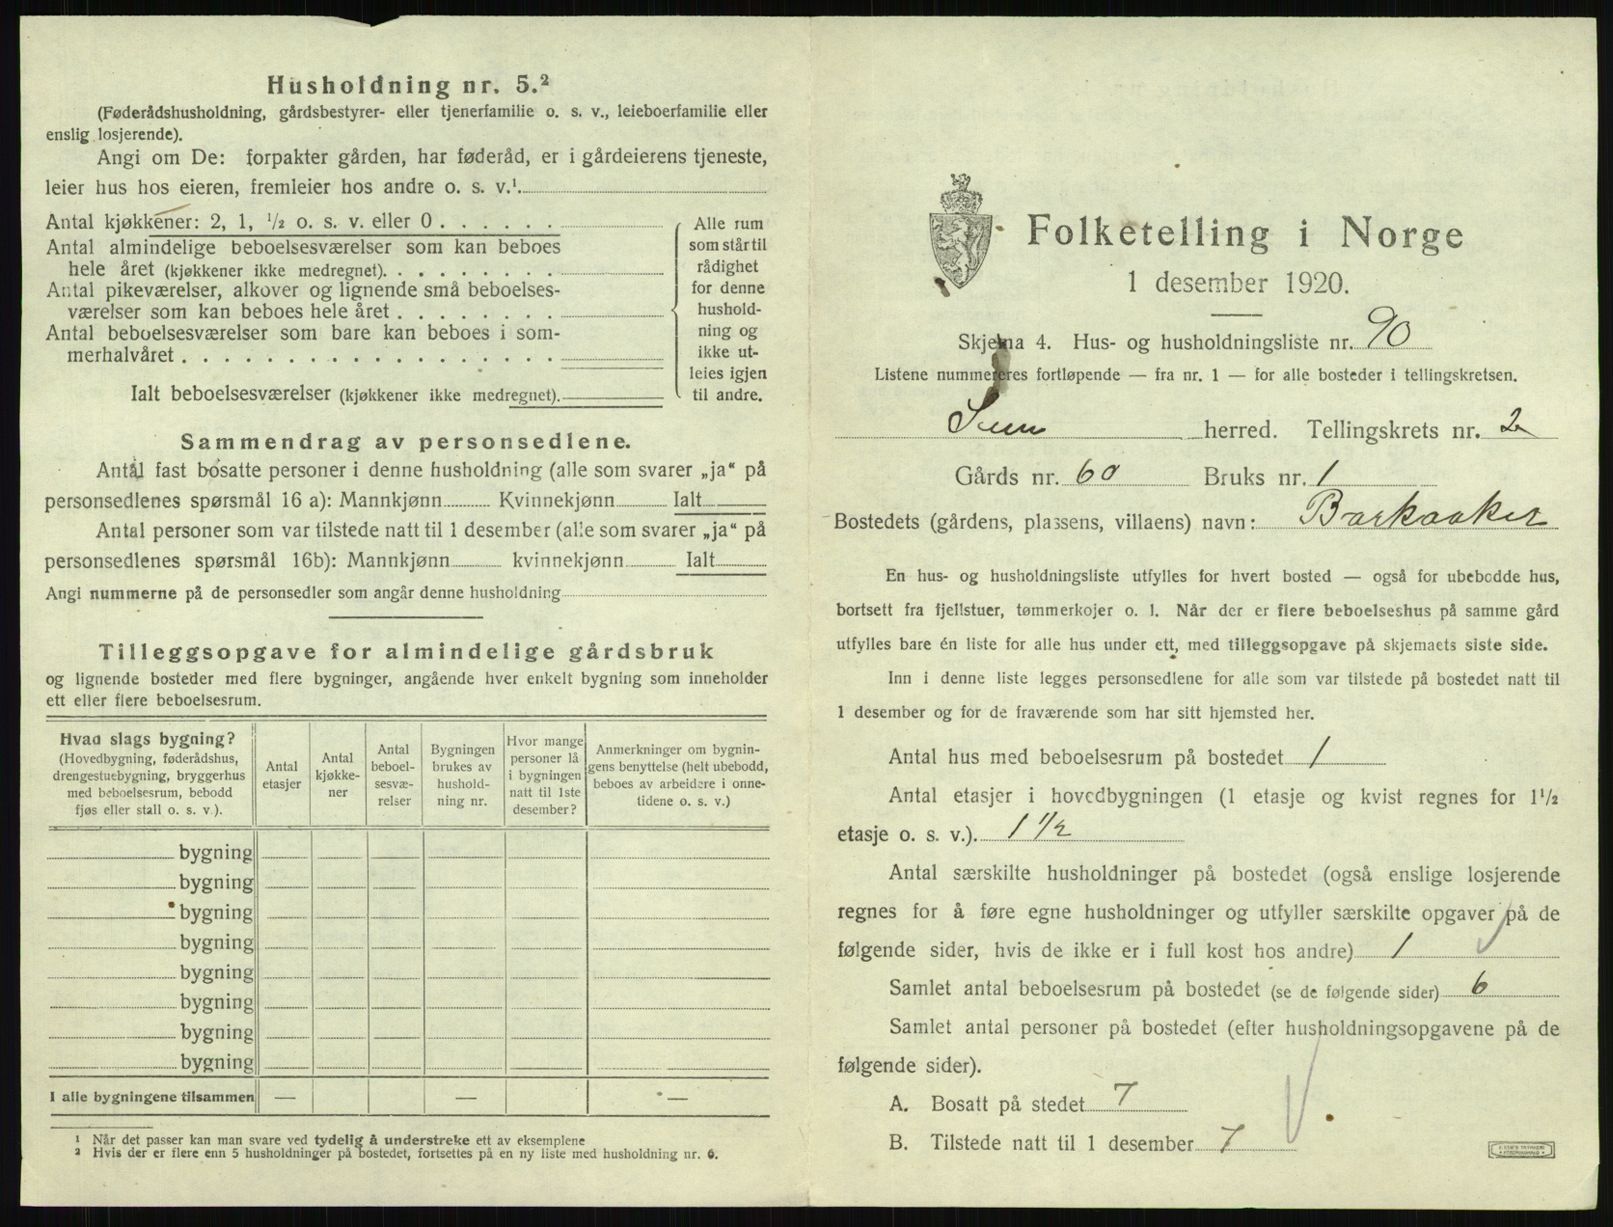 Husholdning nr. 5.²
(Føderådshusholdning, gårdsbestyrer- eller tjenerfamilie o. s. v., leieboerfamilie eller
enslig losjerende).
Angi om De: forpakter gården, har føderåd, er i gårdeierens tjeneste,
leier hus hos eieren, fremleier hos andre o. s. v.¹
Antal kjøkkener: 2, 1, ½ o. s. v. eller 0
Antal almindelige beboelsesværelser som kan beboes
hele året (kjøkkener ikke medregnet)
Antal pikeværelser, alkover og lignende små beboelses-
værelser som kan beboes hele året
Antal beboelsesværelser som bare kan beboes i som-
merhalvåret
Ialt beboelsesværelser (kjøkkener ikke medregnet)
Alle rum
som står til
rådighet
for denne
hushold-
ning og
ikke ut-
leies igjen
til andre.
Sammendrag av personsedlene.
Antal fast bosatte personer i denne husholdning (alle som svarer „ja“ på
personsedlenes spørsmål 16 a): Mannkjønn Kvinnekjønn Ialt
Antal personer som var tilstede natt til 1 desember (alle som svarer „ja“ på
personsedlenes spørsmål 16b): Mannkjønn kvinnekjønn Ialt
Angi nummerne på de personsedler som angår denne husholdning
Tilleggsopgave for almindelige gårdsbruk
og lignende bosteder med flere bygninger, angående hver enkelt bygning som inneholder
ett eller flere beboelsesrum.
Hvad slags bygning?
(Hovedbygning, føderådshus,
drengestuebygning, bryggerhus
med beboelsesrum, bebodd
fjøs eller stall o. s. v.).
Antal
etasjer
Antal
kjøkke-
ner
Antal
beboel-
sesvæ-
relser
Bygningen
brukes av
hushold-
ning nr.
Hvor mange
personer lå
i bygningen
natt til 1ste
desember?
Anmerkninger om bygnin-
gens benyttelse (helt ubebodd,
beboes av arbeidere i onne-
tidene o. s. v.)
bygning
bygning
bygning
bygning
bygning
bygning
bygning
bygning
I alle bygningene tilsammen — — —
¹ Når det passer kan man svare ved tydelig å understreke ett av eksemplene
² Hvis der er flere enn 5 husholdninger på bostedet, fortsettes på en ny liste med husholdning nr. 6.
Folketelling i Norge
1 desember 1920.
Skjema 4. Hus- og husholdningsliste nr. 90
Listene nummereres fortløpende — fra nr. 1 — for alle bosteder i tellingskretsen.
Sem herred. Tellingskrets nr. 2
Gårds nr. 60 Bruks nr. 1
Bostedets (gårdens, plassens, villaens) navn: Barkaaker
En hus- og husholdningsliste utfylles for hvert bosted — også for ubebodde hus,
bortsett fra fjellstuer, tømmerkojer o. l. Når der er flere beboelseshus på samme gård
utfylles bare én liste for alle hus under ett, med tilleggsopgave på skjemaets siste side.
Inn i denne liste legges personsedlene for alle som var tilstede på bostedet natt til
1 desember og for de fraværende som har sitt hjemsted her.
Antal hus med beboelsesrum på bostedet 1
Antal etasjer i hovedbygningen (1 etasje og kvist regnes for 1½
etasje o. s. v.). 1 1/2
Antal særskilte husholdninger på bostedet (også enslige losjerende
regnes for å føre egne husholdninger og utfyller særskilte opgaver på de
følgende sider, hvis de ikke er i full kost hos andre) 1
Samlet antal beboelsesrum på bostedet (se de følgende sider) 6
Samlet antal personer på bostedet (efter husholdningsopgavene på de
følgende sider).
A. Bosatt på stedet 7
B. Tilstede natt til 1 desember 7